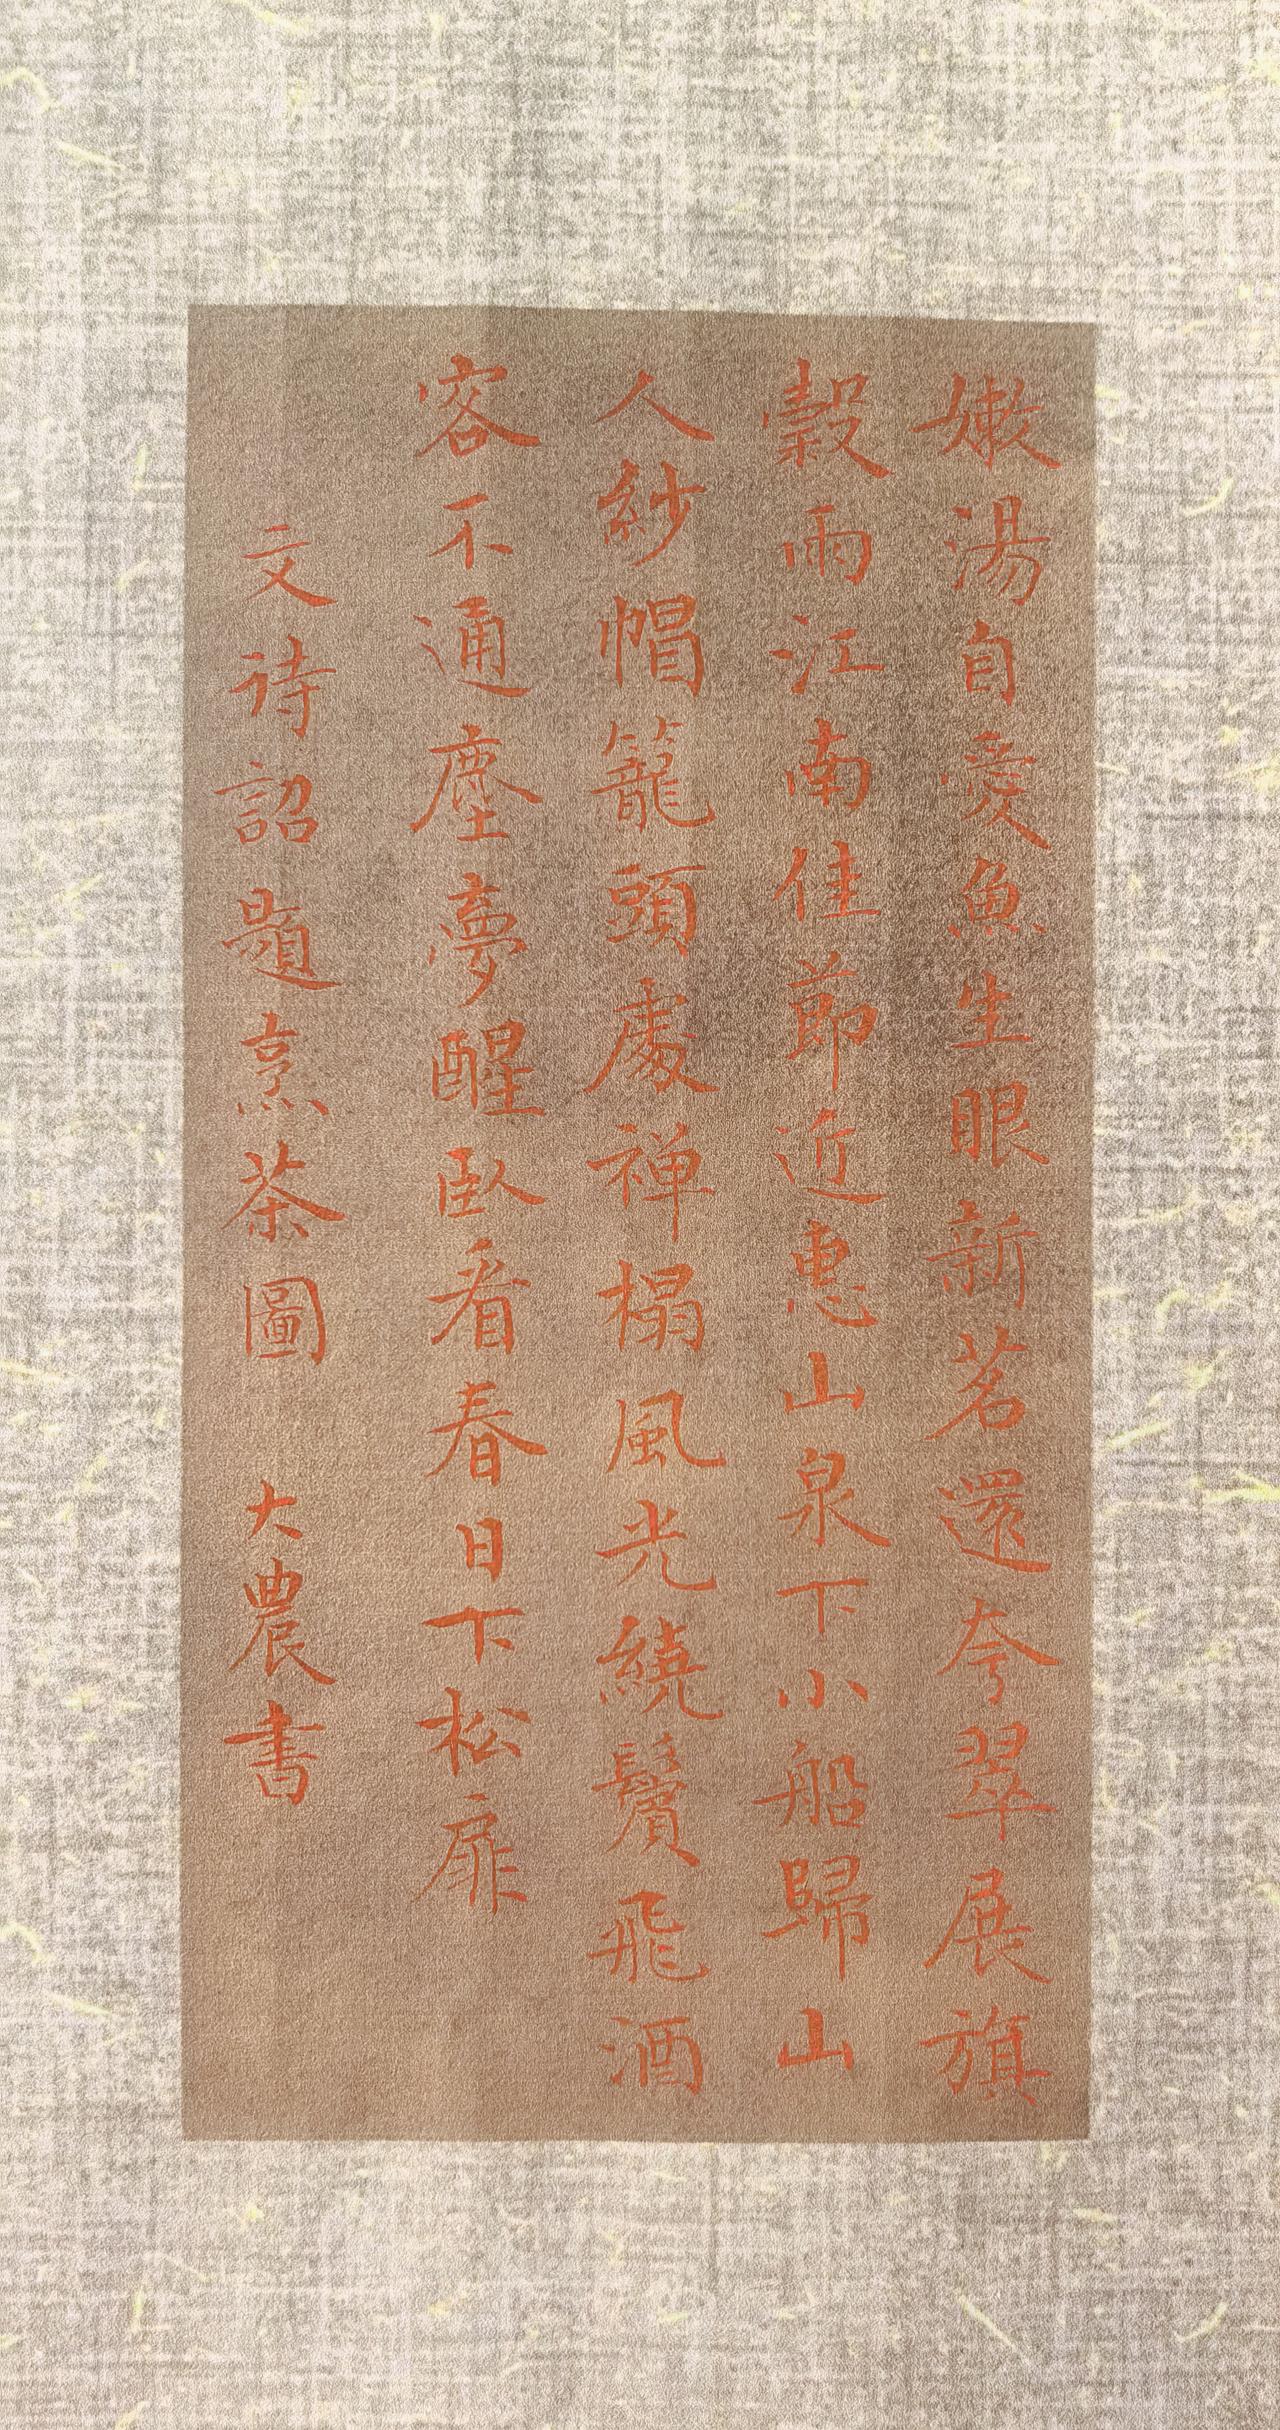 嫩湯自愛魚生眼新茗還夸翠展旗
穀雨江南佳節近惠山泉下小船歸山
人紗帽籠頭處禪榻風光繞鬢飛酒
客不通塵夢醒臥看春日下松扉
文待詔題烹茶圖 大農書